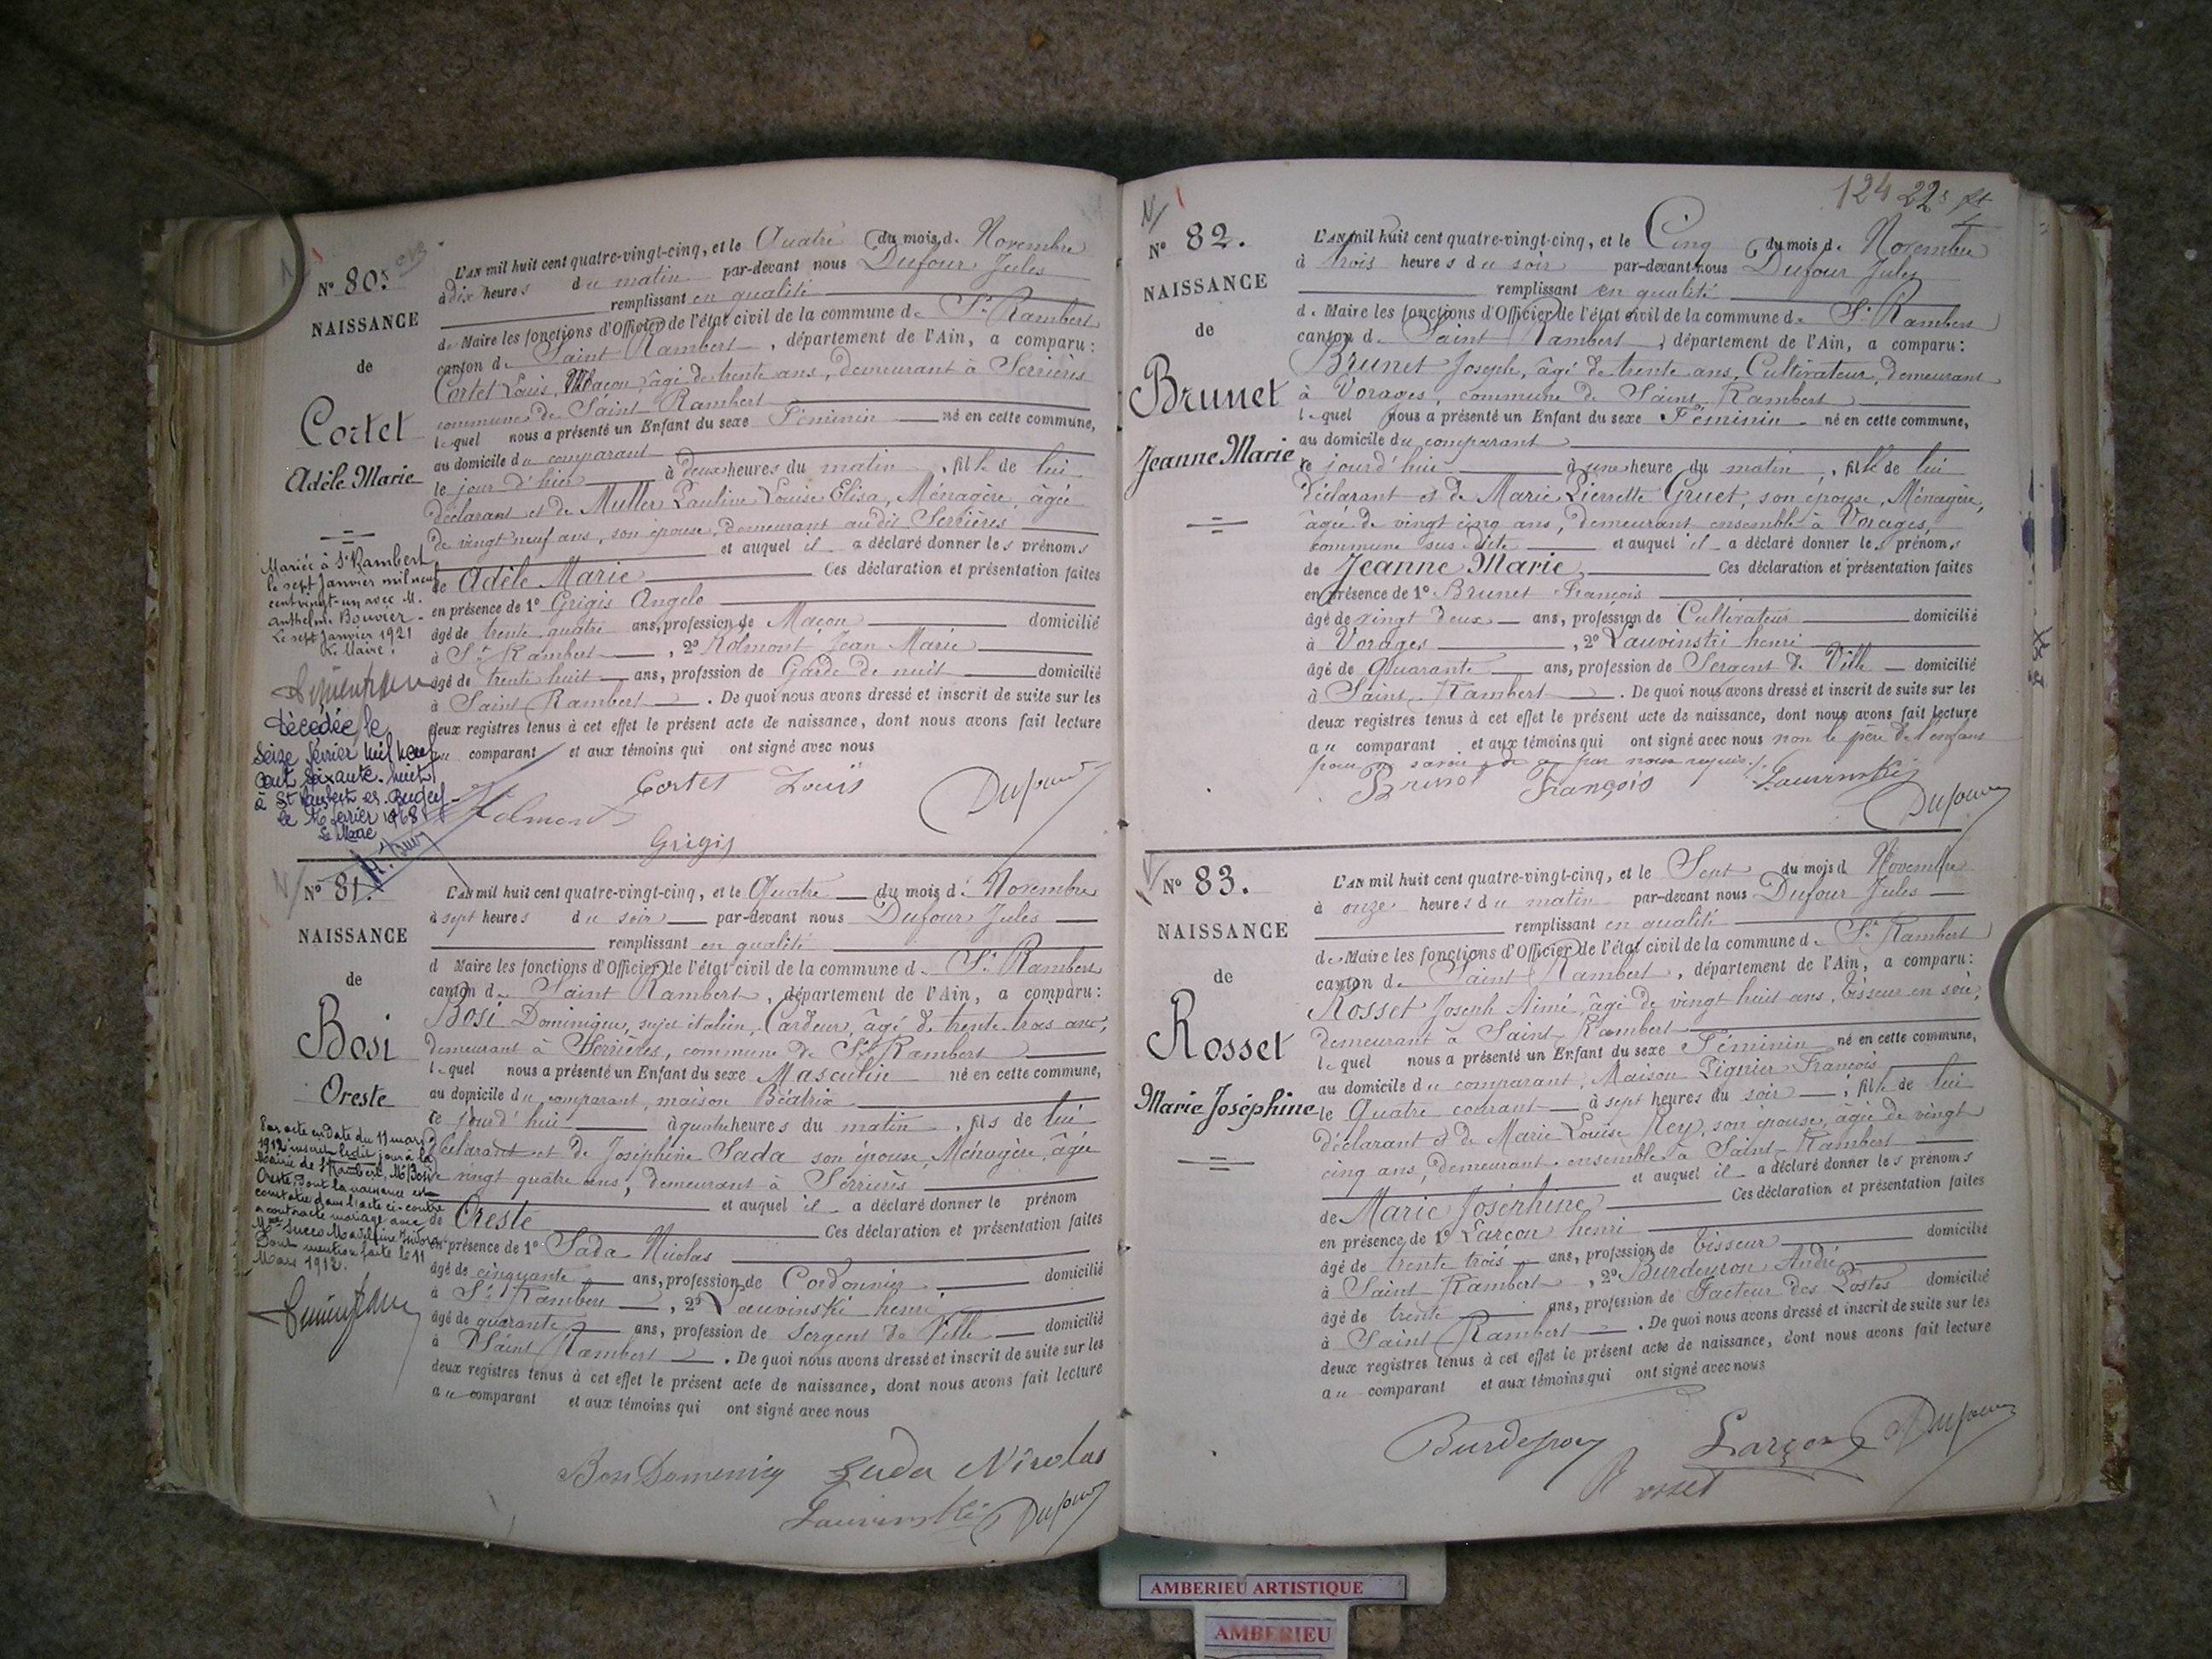 N° 80.
NAISSANCE
de
Cortet
Adèle Marie
Mariée à St Rambert
le sept Janvier mil neuf
cent vingt-un avec M.
Anthelme Bouvier
Le sept Janvier 1921
Le Maire,
Décédée le
seize février mil neuf
cent soixante-huit
à St Rambert en Bugey
le 16 février 1968
Le Maire
L'AN mil huit cent quatre-vingt-cinq, et le Quatre du mois de Novembre
à dix heures du matin par-devant nous Dufour Jules
remplissant en qualité
de Maire les fonctions d'Officier de l'état civil de la commune de St Rambert
canton de Saint Rambert, département de l'Ain, a comparu:
Cortet Louis, Maçon, âgé de trente ans, demeurant à Serrières
commune de Saint Rambert
lequel nous a présenté un Enfant du sexe Féminin né en cette commune,
au domicile du comparant
le jour d'hier à deux heures du matin, fille de lui
déclarant et de Muller Pauline Louise Elisa, Ménagère, âgée
de vingt neuf ans, son épouse, demeurant au dit Serrières
et auquel il a déclaré donner les prénoms
de Adèle Marie Ces déclaration et présentation faites
en présence de 1° Grigis Angelo
âgé de trente quatre ans, profession de Maçon domicilié
à St Rambert, 2° Rolmont Jean Marie
âgé de trente huit ans, profession de Garde de nuit domicilié
à Saint Rambert. De quoi nous avons dressé et inscrit de suite sur les
deux registres tenus à cet effet le présent acte de naissance, dont nous avons fait lecture
au comparant et aux témoins qui ont signé avec nous
Cortet Louis
Dufour
Grigis
N° 81.
NAISSANCE
de
Bosi
Oreste
Par acte en date du 11 mars
1912 inscrit ledit jour à la
Mairie de St Rambert, Mr Bosi
Oreste, dont la naissance est
constatée dans l'acte ci-contre
a contracté mariage avec
Melle Succo Madeleine
Dont mention faite le 11
Mars 1912.
L'AN mil huit cent quatre-vingt-cinq, et le Quatre du mois de Novembre
à sept heures du soir par-devant nous Dufour Jules
remplissant en qualité
d Maire les fonctions d'Officier de l'état civil de la commune de St Rambert
canton de Saint Rambert, département de l'Ain, a comparu:
Bosi Dominique, sujet italien, Cardeur, âgé de trente trois ans,
demeurant à Serrières, commune de St Rambert
lequel nous a présenté un Enfant du sexe Masculin né en cette commune,
au domicile du comparant, maison Béatrix
ce jourd'hui à quatre heures du matin, fils de lui
déclarant et de Joséphine Sada son épouse, Ménagère, âgée
de vingt quatre ans, demeurant à Serrières
et auquel il a déclaré donner le prénom
de Oreste Ces déclaration et présentation faites
en présence de 1° Sada Nicolas
âgé de cinquante ans, profession de Cordonnier domicilié
à St Rambert, 2° Lauvinski henri
âgé de quarante ans, profession de Sergent de Ville domicilié
à Saint Rambert. De quoi nous avons dressé et inscrit de suite sur les
deux registres tenus à cet effet le présent acte de naissance, dont nous avons fait lecture
au comparant et aux témoins qui ont signé avec nous
Sada Nicolas
Lauvinski Dufour
124
N° 82.
NAISSANCE
de
Brunet
Jeanne Marie
L'AN mil huit cent quatre-vingt-cinq, et le Cinq du mois de Novembre
à trois heures du soir par-devant nous Dufour Jules
remplissant en qualité
de Maire les fonctions d'Officier de l'état civil de la commune de St Rambert
canton de Saint Rambert, département de l'Ain, a comparu:
Brunet Joseph, âgé de trente ans, Cultivateur, demeurant
à Vorages, commune de Saint Rambert
lequel nous a présenté un Enfant du sexe Féminin né en cette commune,
au domicile du comparant
ce jourd'hui à une heure du matin, fille de lui
déclarant et de Marie Pierrette Gruet, son épouse, Ménagère,
âgée de vingt cinq ans, demeurant ensemble à Vorages,
commune sus dite et auquel il a déclaré donner les prénoms
de Jeanne Marie, Ces déclaration et présentation faites
en présence de 1° Brunet François
âgé de vingt deux ans, profession de Cultivateur domicilié
à Vorages, 2° Lauvinski henri
âgé de Quarante ans, profession de Sergent de Ville domicilié
à Saint Rambert. De quoi nous avons dressé et inscrit de suite sur les
deux registres tenus à cet effet le présent acte de naissance, dont nous avons fait lecture
au comparant et aux témoins qui ont signé avec nous non le père de l'enfant
pour ne savoir de ce par nous requis.
Brunet François Lauvinski
Dufour
N° 83.
NAISSANCE
de
Rosset
Marie Joséphine
L'AN mil huit cent quatre-vingt-cinq, et le Sept du mois d Novembre
à onze heures du matin par-devant nous Dufour Jules
remplissant en qualité
de Maire les fonctions d'Officier de l'état civil de la commune de St Rambert
canton de Saint Rambert, département de l'Ain, a comparu:
Rosset Joseph Aimé, âgé de vingt huit ans, tisseur en soie,
demeurant à Saint Rambert
lequel nous a présenté un Enfant du sexe Féminin né en cette commune,
au domicile du comparant, Maison Pignier François
le Quatre courant à sept heures du soir, fille de lui
déclarant et de Marie Louise Rey, son épouse, âgée de vingt
cinq ans, demeurant ensemble à Saint Rambert
et auquel il a déclaré donner les prénoms
de Marie Joséphine Ces déclaration et présentation faites
en présence de 1° Larçon henri
âgé de trente trois ans, profession de Tisseur domicilié
à Saint Rambert, 2° Burdeyron André
âgé de trente ans, profession de Facteur des Postes domicilié
à Saint Rambert. De quoi nous avons dressé et inscrit de suite sur les
deux registres tenus à cet effet le présent acte de naissance, dont nous avons fait lecture
au comparant et aux témoins qui ont signé avec nous
Burdeyron Larçon Dufour
Rosset
AMBERIEU ARTISTIQUE
AMBERIEU